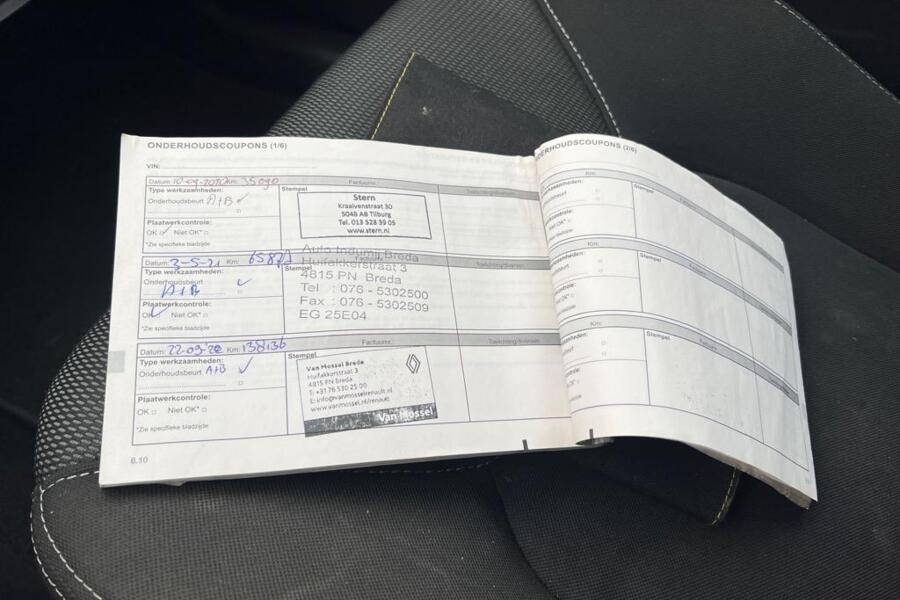 ONDERHOUDSCOUPONS (1/6)
VIN:
Datum: 10-09-2020 Km: 35090
Type werkzaamheden:
Onderhoudsbeurt A+B ✓
Plaatwerkcontrole:
OK ✓ Niet OK*
*Zie specifieke bladzijde
Stempel
Stern
Kraaivenstraat 30
5048 AB Tilburg
Tel. 013 528 39 05
www.stern.nl
Datum: 3-5-21 Km:
Type werkzaamheden:
Onderhoudsbeurt ✓
A+B
Plaatwerkcontrole:
OK ✓ Niet OK*
*Zie specifieke bladzijde
Stempel
Auto Indumij Breda
Huifakkerstraat 3
4815 PN Breda
Tel : 076 - 5302500
Fax : 076 - 5302509
EG 25E04
Datum: 22-09-'22 Km: 138136
Type werkzaamheden:
Onderhoudsbeurt A+B ✓
Plaatwerkcontrole:
OK Niet OK*
*Zie specifieke bladzijde
Stempel
Van Mossel Breda
Huifakkersstraat 3
4815 PN Breda
T: +31 76 530 25 00
E: info@vanmosselrenault.nl
www.vanmossel.nl/renault
Van Mossel
6.10
ONDERHOUDSCOUPONS (2/6)
Km:
Stempel
Km:
Stempel
Km:
Stempel